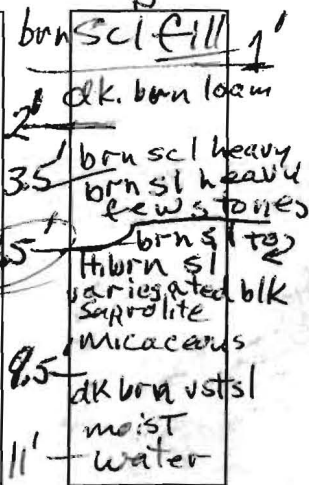 brn scl fill 1'
dk. brn loam
2'
brn scl heavy
3.5' brn sl heavy
few stones
.5' brn sl to
ltbrn sl
variegated blk
saprolite
micaceous
9.5'
dk brn vstsl
moist
11' water